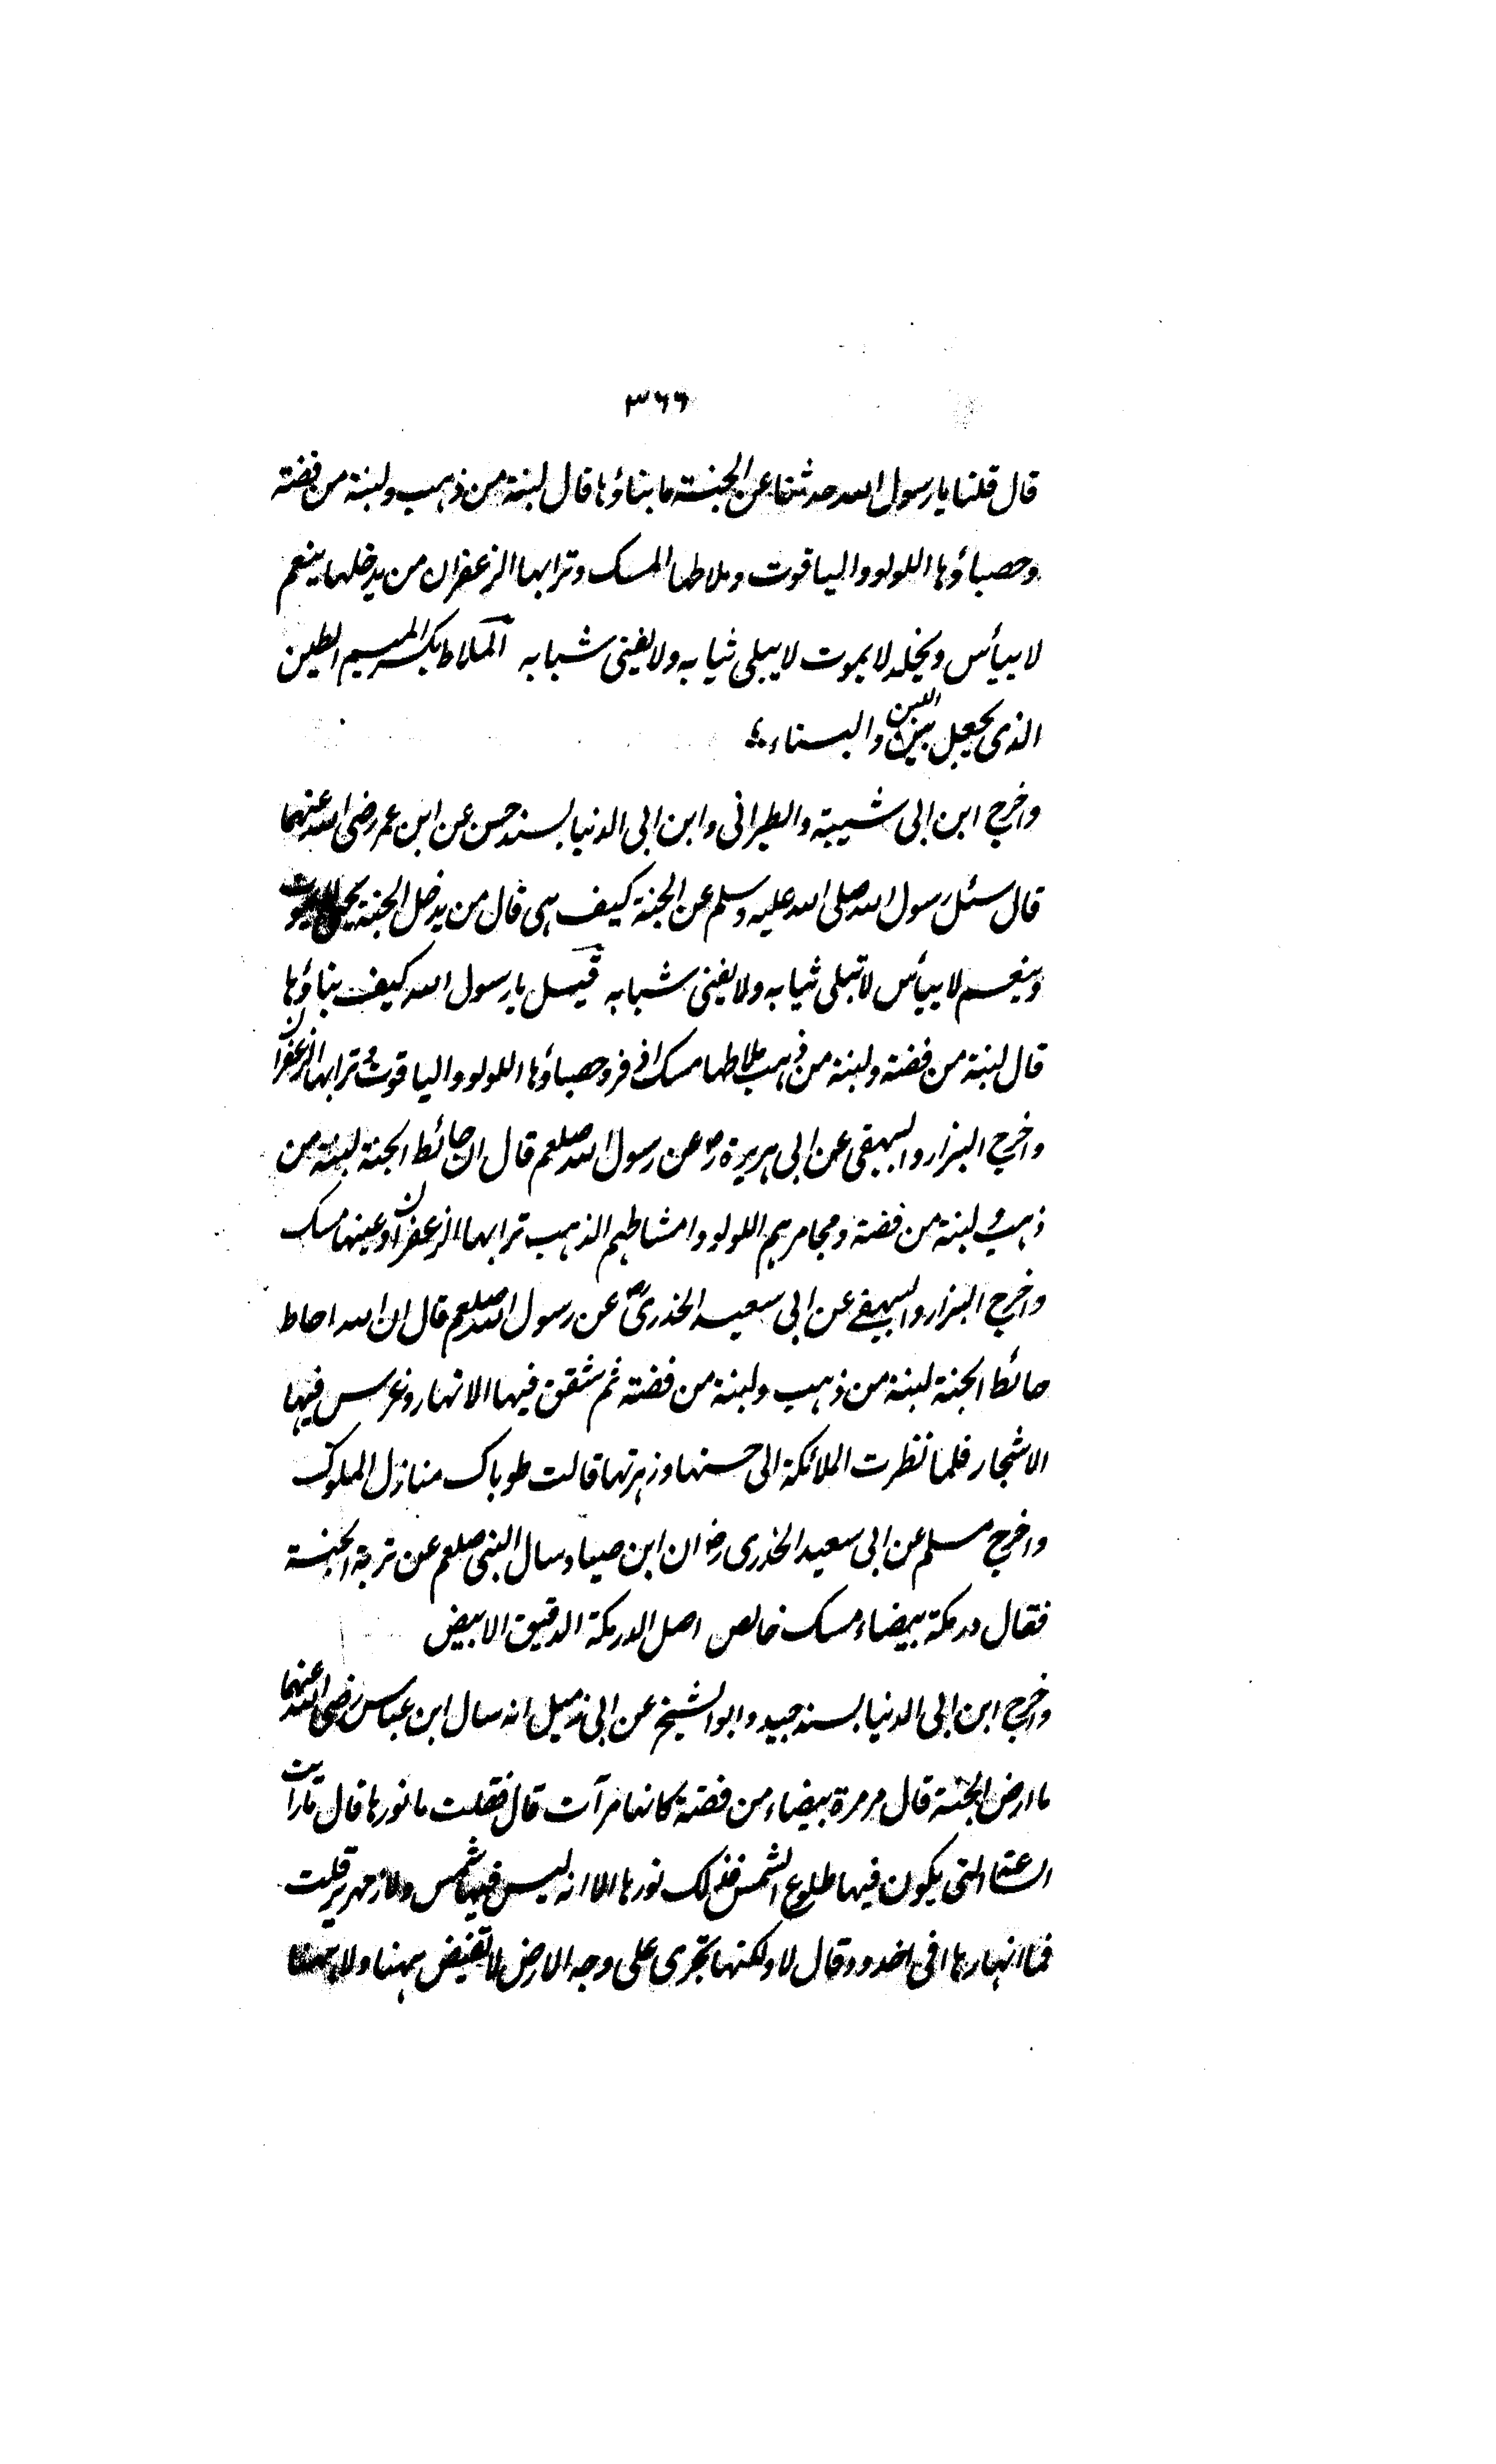 ٣٦٦
قال قلنا يا رسول الله حدثنا عن الجنة ما بناؤها قال لبنة من ذهب ولبنة من فضة
وحصباؤها اللولو والياقوت وملاطها المسك وترابها الزعفران من يدخلها ينعم
لا يبأس ويخلد لا يموت لا يبلى ثيابه ولا يفنى شبابه الملاط بكسر الميم الطين
الذى يجعل بين اللبن والبناء
واخرج ابن ابى شيبة والطبرانى وابن ابى الدنيا بسند حسن عن ابن عمر رضى الله عنهما
قال سئل رسول الله صلى الله عليه وسلم عن الجنة كيف هى قال من يدخل الجنة يحيى لا يموت
وينعم لا يبأس لا تبلى ثيابه ولا يفنى شبابه قيل يا رسول الله كيف بناؤها
قال لبنة من فضة ولبنة من ذهب ملاطها مسك اذفر وحصباؤها اللولو والياقوت وترابها الزعفران
واخرج البزار والبيهقى عن ابى هريرة رض عن رسول الله صلعم قال ان حائط الجنة لبنة من
ذهب ولبنة من فضة ومجامرهم اللولو وامشاطهم الذهب ترابها الزعفران وعينها مسك
واخرج البزار والبيهقے عن ابى سعيد الخدرى رض عن رسول الله صلعم قال ان الله احاط
حائط الجنة لبنة من ذهب ولبنة من فضة ثم شقق فيها الانهار وغرس فيها
الاشجار فلما نظرت الملائكة الى حسنها وزهرتها قالت طوباك منازل الملوك
واخرج مسلم عن ابى سعيد الخدرى رض ان ابن صياد سال النبى صلعم عن تربة الجنة
فقال درمكة بيضاء مسك خالص اصل الدرمكة الدقيق الابيض
واخرج ابن ابى الدنيا بسند جيد وابو الشيخ عن ابى زميل انه سال ابن عباس رضى الله عنهما
ما ارض الجنة قال مرمرة بيضاء من فضة كانها مرآت قال فقلت ما نورها قال ما رأيت
الساعة التى يكون فيها طلوع الشمس فذلك نورها الا انه ليس فيها شمس ولا زمهرير قلت
فما انهارها افى اخدود قال لا ولكنها تجرى على وجه الارض لا تفيض ههنا ولا ههنا